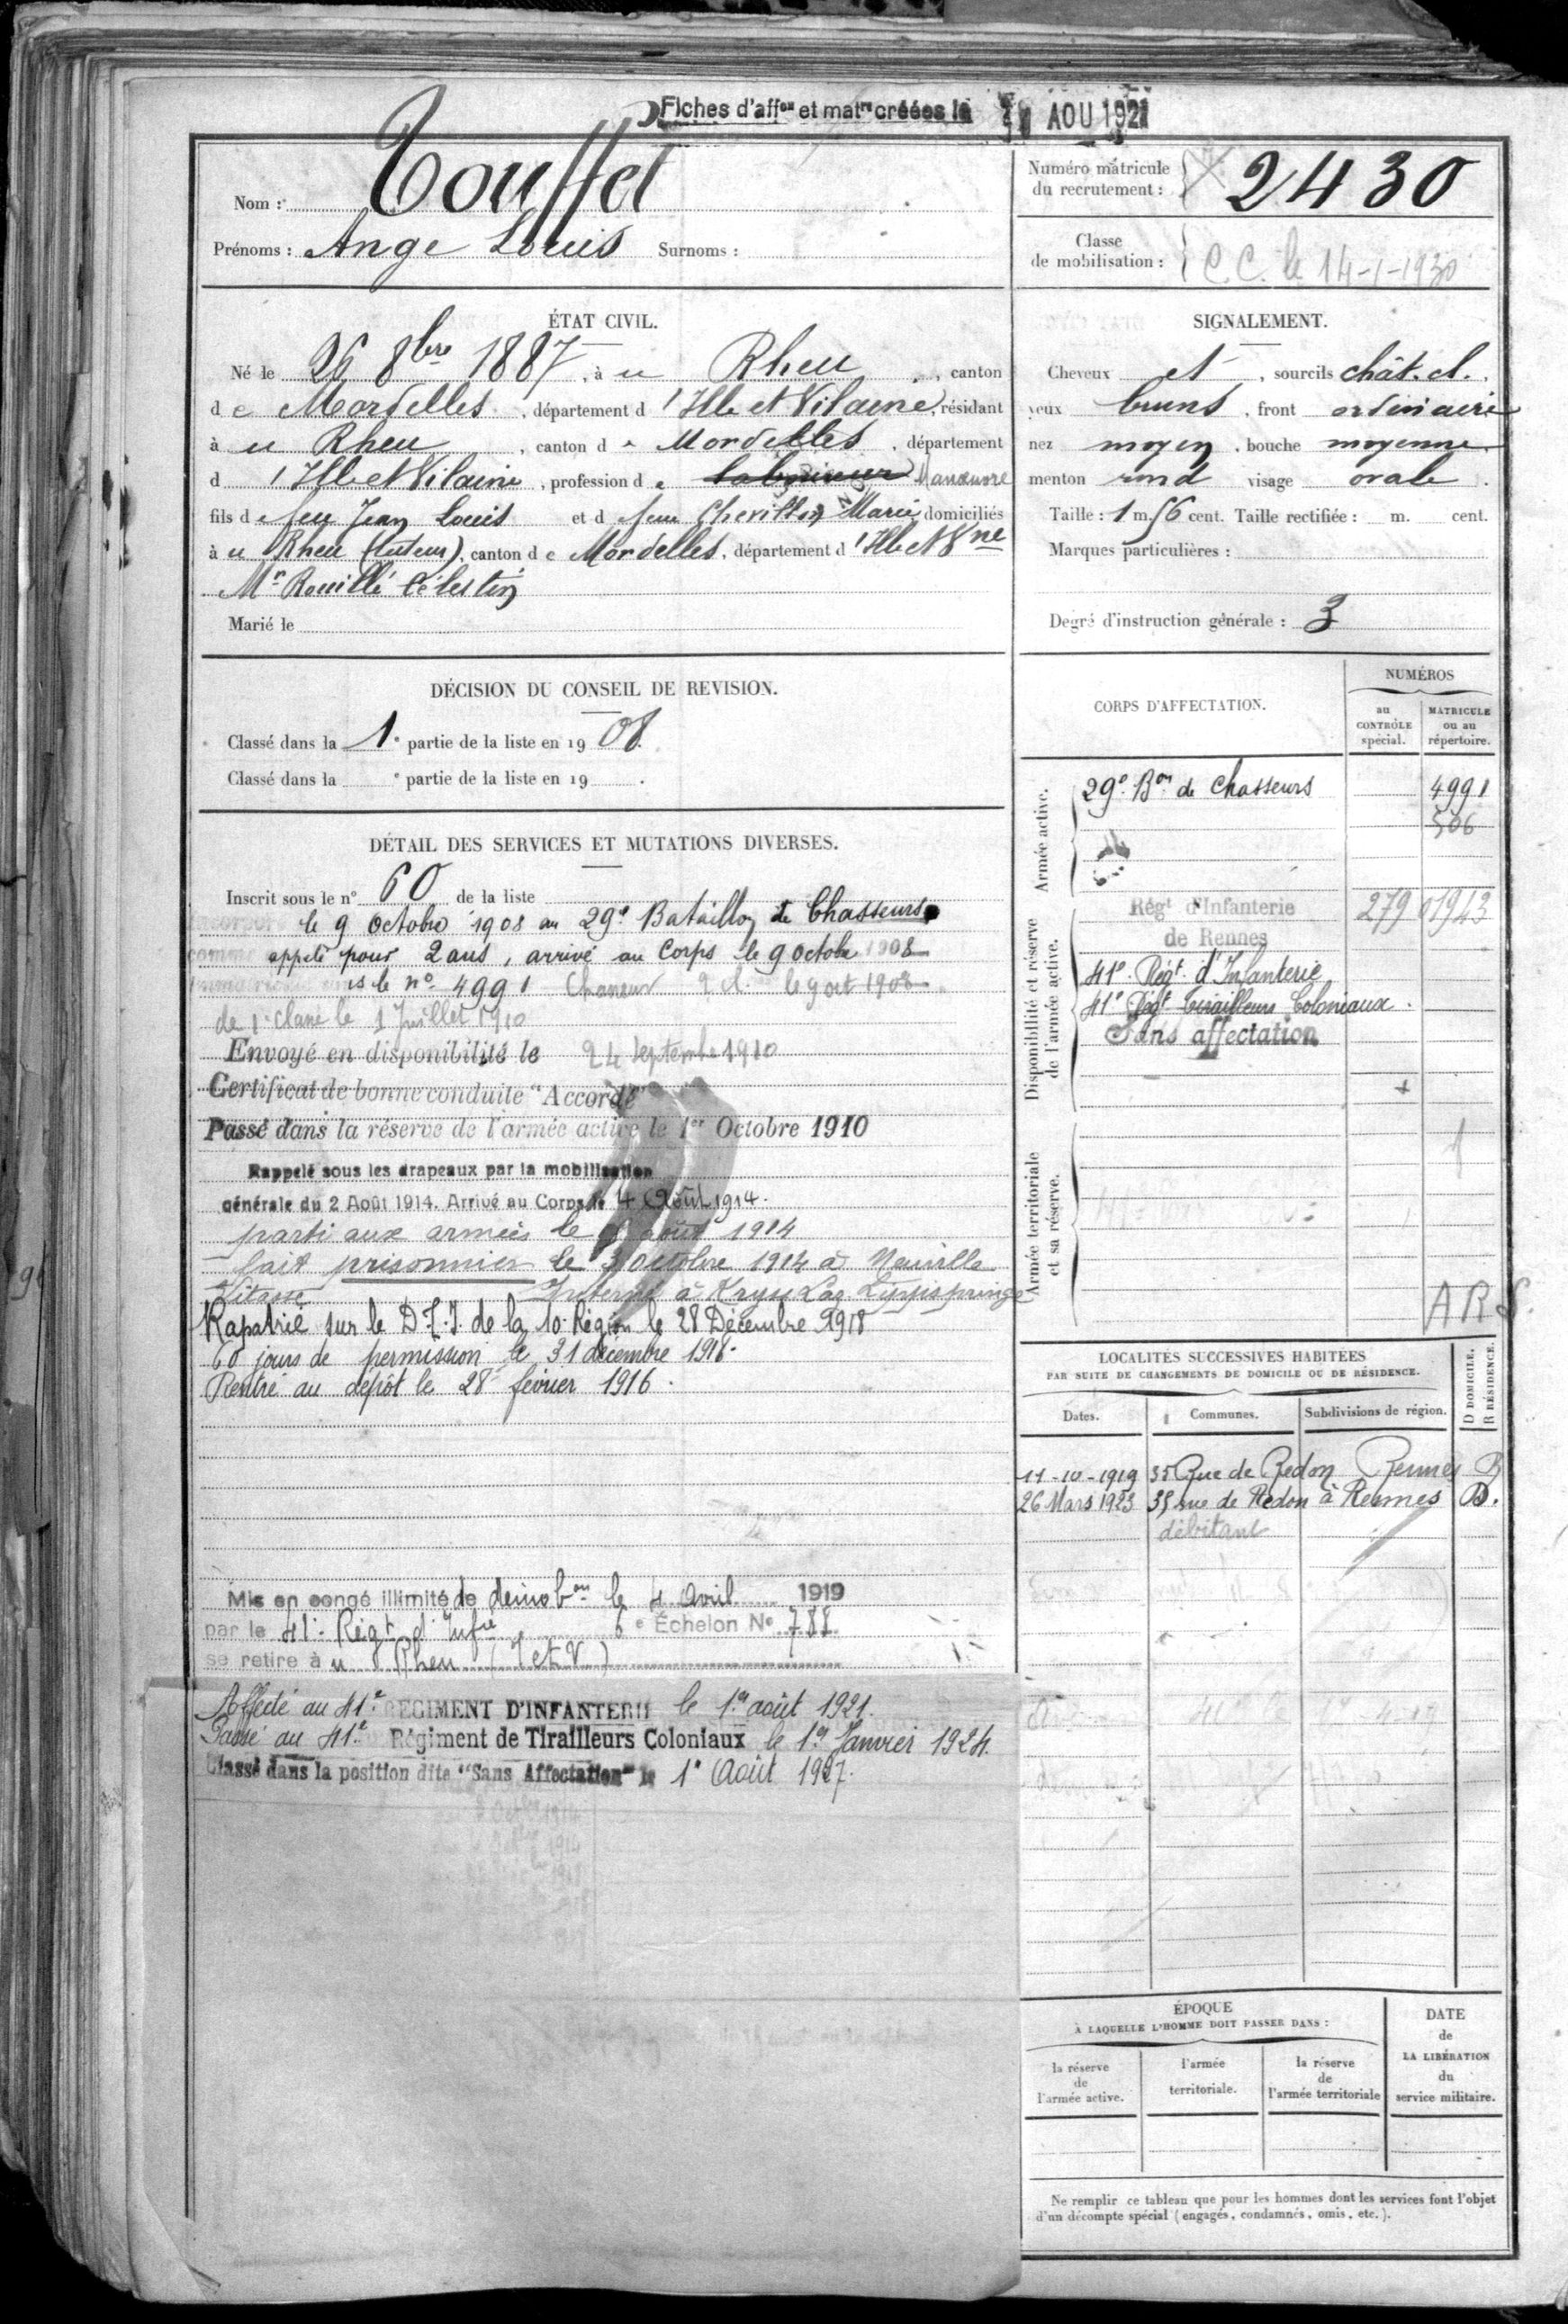 Fiches d'affon et matre créées le AOU 1921
Nom : Touffet
Prénoms : Ange Louis Surnoms :
Numéro matricule du recrutement : 2430
Classe de mobilisation : C.C. le 14-1-1930
ÉTAT CIVIL.
Né le 26 8bre 1887, à u Rheu, canton
de Mordelles, département d'Ille et Vilaine, résidant
à u Rheu, canton de Mordelles, département
d'Ille et Vilaine, profession de laboureur Manœuvre
fils de feu Jean Louis et d feue Chevillon Marie, domiciliés
à u Rheu (tuteur), canton de Mordelles, département d'Ille et Vne
Mr Rouillé Célestin
Marié le
SIGNALEMENT.
Cheveux et, sourcils chât. cl.
yeux bruns, front ordinaire
nez moyen, bouche moyenne
menton rond visage ovale.
Taille : 1 m. 56 cent. Taille rectifiée : m. cent.
Marques particulières :
Degré d'instruction générale : 3
DÉCISION DU CONSEIL DE REVISION.
Classé dans la 1e partie de la liste en 1908.
Classé dans la e partie de la liste en 19 .
DÉTAIL DES SERVICES ET MUTATIONS DIVERSES.
Inscrit sous le n° 60 de la liste
le 9 octobre 1908 au 29e Bataillon de Chasseurs
comme appelé pour 2 ans, arrivé au Corps le 9 octobre 1908
s le n° 4991 Chasseur 2 cl. le 9 oct 1908
de 1e classe le 1 Juillet 1910
Envoyé en disponibilité le 24 Septembre 1910
Certificat de bonne conduite "Accordé"
Passé dans la réserve de l'armée active le 1er Octobre 1910
Rappelé sous les drapeaux par la mobilisation
générale du 2 Août 1914. Arrivé au Corps le 4 Août 1914.
parti aux armées le août 1914
fait prisonnier le 3 octobre 1914 à Neuville
Vitasse Interné à Krgsf Lag Lippspringe
Rapatrié sur le D.I.I. de la 10e Région le 28 Décembre 1918
60 jours de permission le 31 décembre 1918.
Rentré au dépôt le 28 février 1916.
Mis en congé illimité de démobon le 4 Avril 1919
par le 41e Régt d'Infie 6e Échelon No 788
se retire à u Rheu (I et V)
Affecté au 41e RÉGIMENT D'INFANTERIE le 1er août 1921.
Passé au 41e Régiment de Tirailleurs Coloniaux le 1er Janvier 1924.
Classé dans la position dite "Sans Affectation" le 1er Août 1927.
CORPS D'AFFECTATION.
NUMÉROS
au CONTRÔLE spécial.
MATRICULE ou au répertoire.
Armée active.
29e Bon de Chasseurs 4991
506
Disponibilité et réserve de l'armée active.
Régt d'Infanterie 279 01943
de Rennes
41e Régt d'Infanterie
41e Régt tirailleurs Coloniaux.
Sans affectation
Armée territoriale et sa réserve.
A R S.
LOCALITÉS SUCCESSIVES HABITÉES
PAR SUITE DE CHANGEMENTS DE DOMICILE OU DE RÉSIDENCE.
Dates. Communes. Subdivisions de région. D DOMICILE. R RÉSIDENCE.
11-10-1919 35 Rue de Redon Rennes R
26 Mars 1923 35 rue de Redon à Rennes D.
débitant
ÉPOQUE
À LAQUELLE L'HOMME DOIT PASSER DANS :
la réserve de l'armée active.
l'armée territoriale.
la réserve de l'armée territoriale
DATE de LA LIBÉRATION du service militaire.
Ne remplir ce tableau que pour les hommes dont les services font l'objet
d'un décompte spécial (engagés, condamnés, omis, etc.).